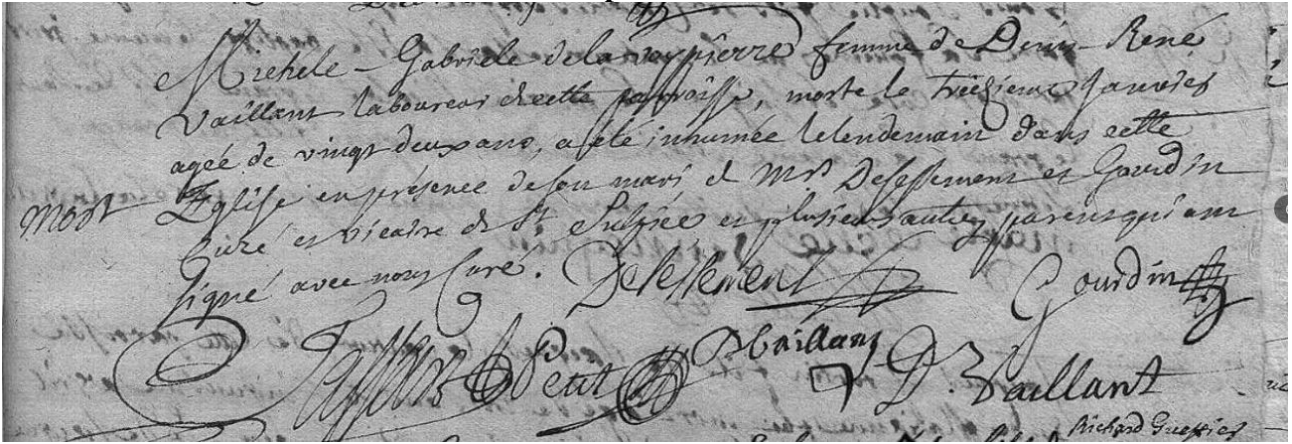 Michele - Gabriele de la femme de Denis - René
Vaillant laboureur de cette parroisse, morte le treizieme Janvier
ageé de vingt deux ans, a eté inhumée le lendemain dans cette
Mort
Eglise en présence de son mari et Mrs Desessement et Gourdin
Curé et vicaire de St Sulpice et plusieurs autres parens qui ont
signé avec nous Curé. Desessement Gourdin
Petit Vaillant D. Vaillant
Richard